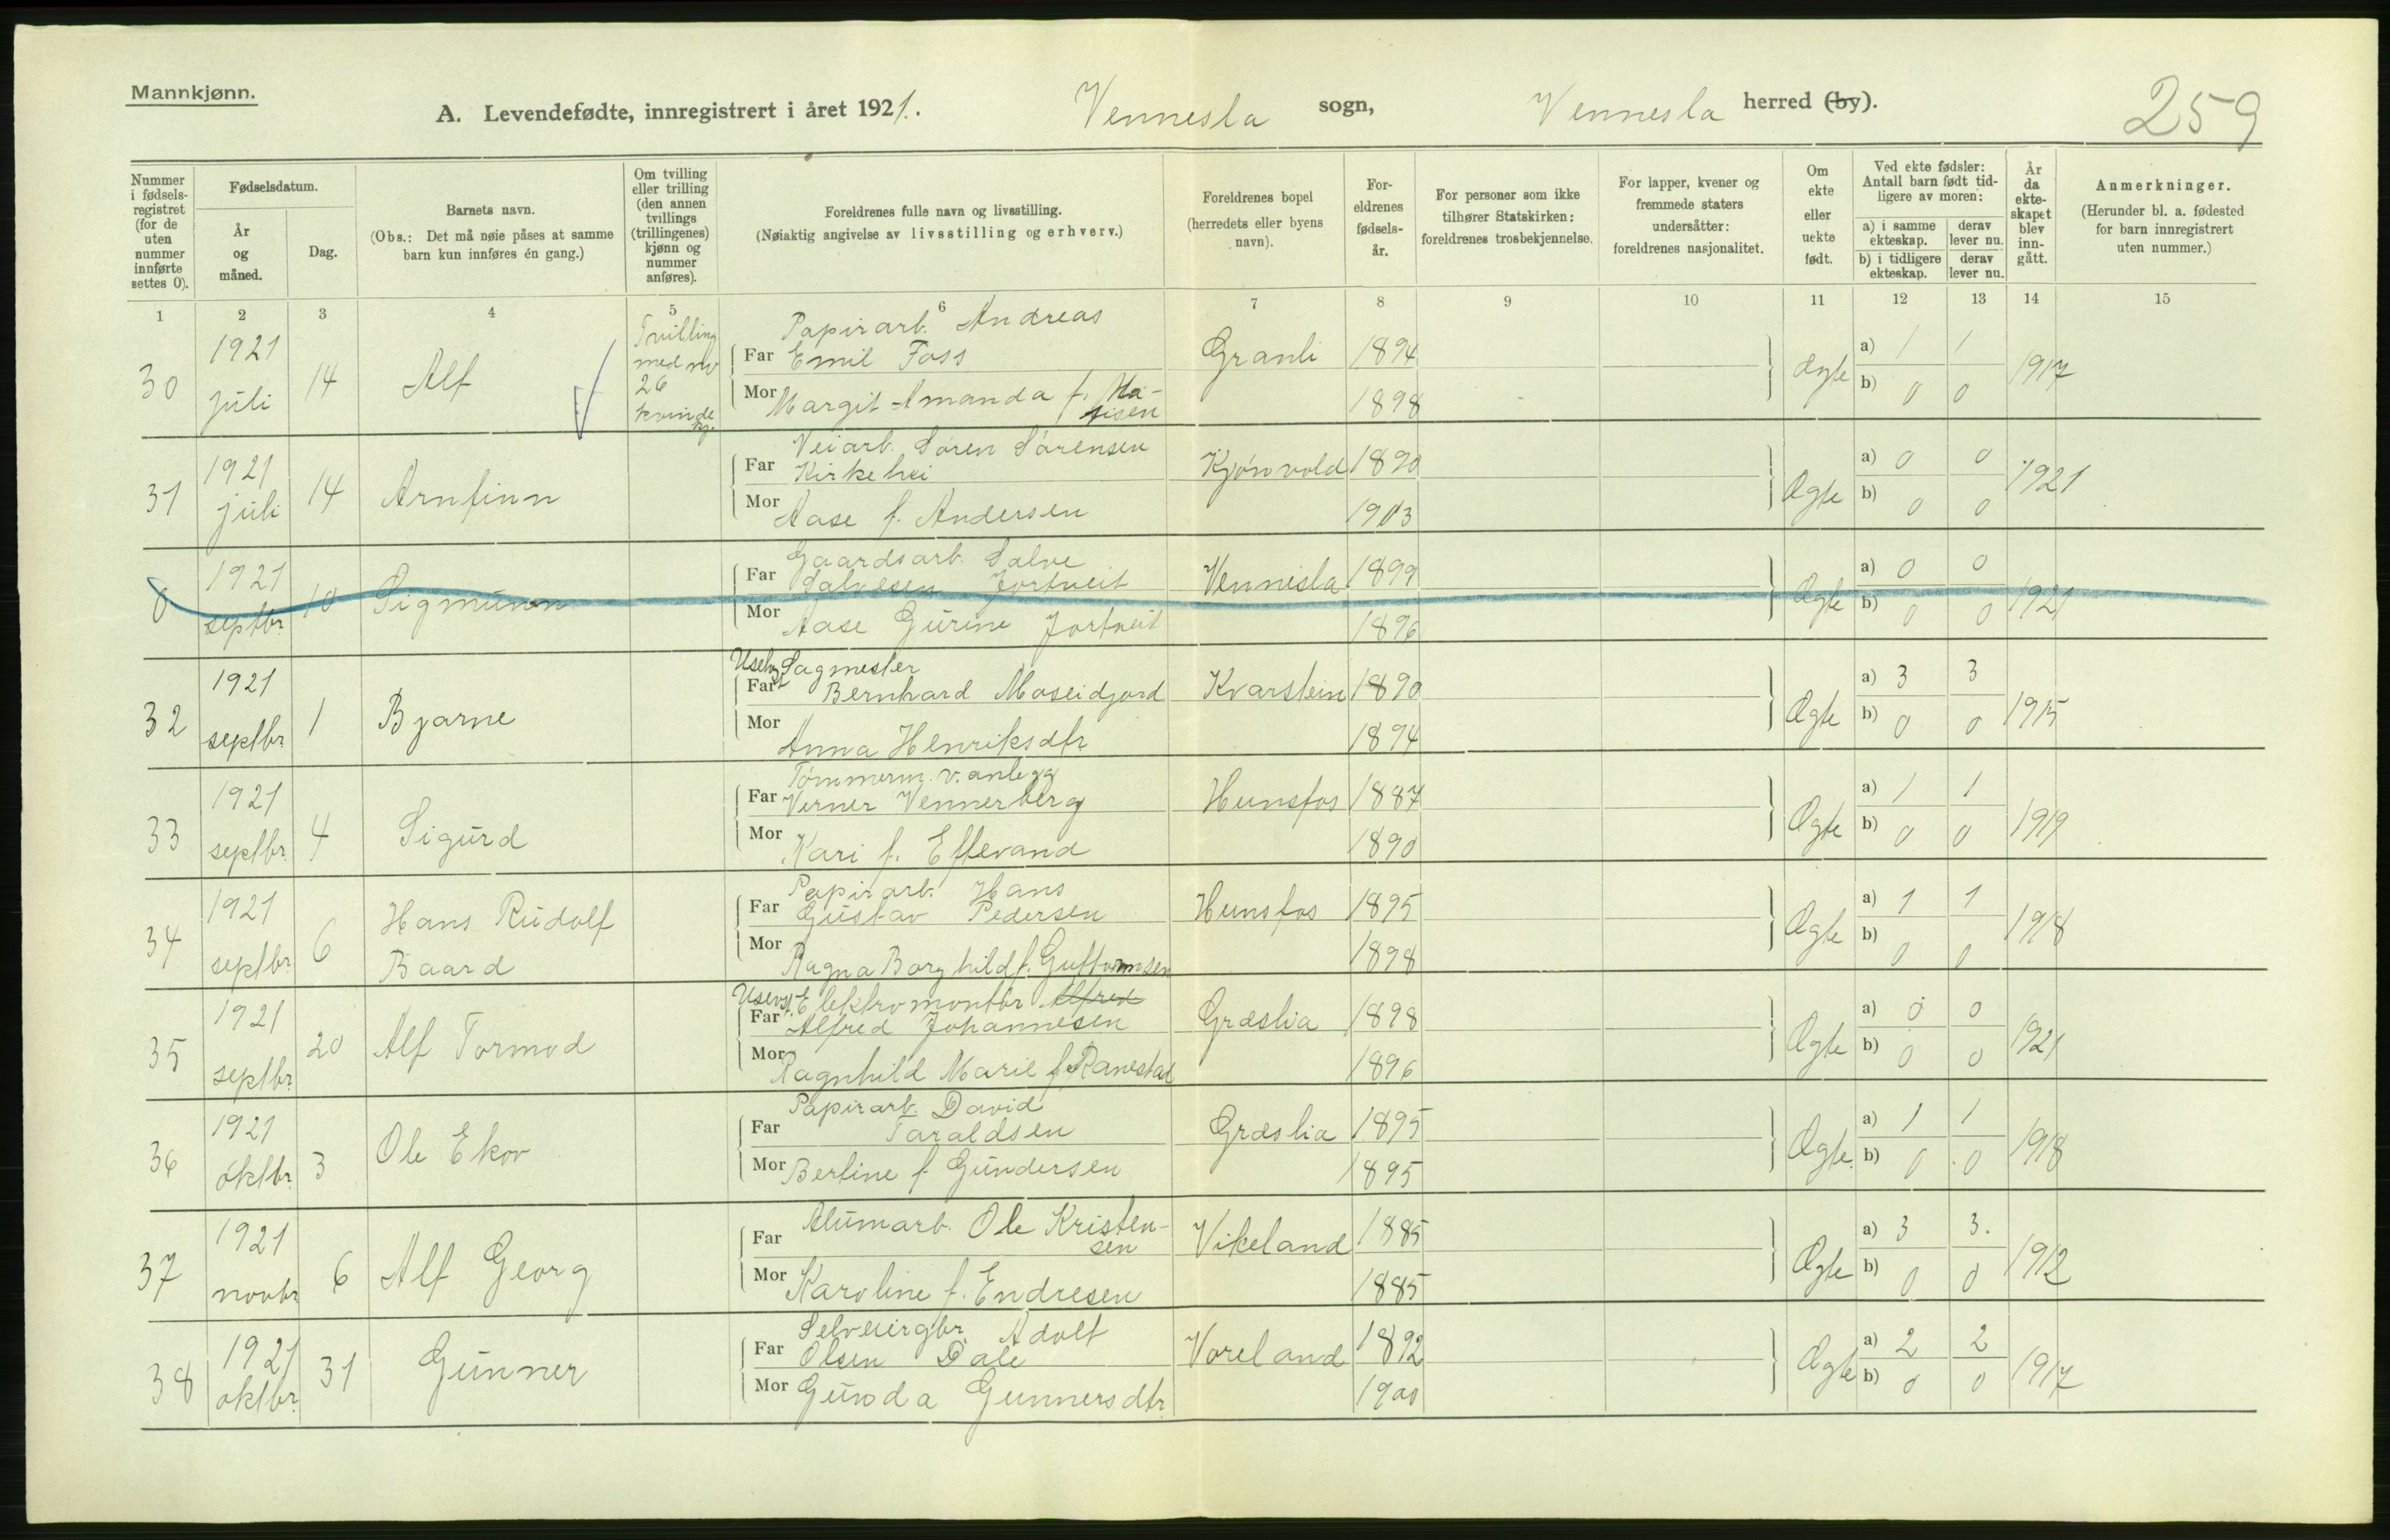 Mannkjønn.
A. Levendefødte, innregistrert i året 1921. Vennesla sogn, Vennesla herred (by). 259
Nummer i fødselsregistret (for de uten nummer innførte settes 0).
Fødselsdatum.
År og måned.
Dag.
Barnets navn.
(Obs.: Det må nøie påses at samme barn kun innføres én gang.)
Om tvilling eller trilling (den annen tvillings (trillingenes) kjønn og nummer anføres).
Foreldrenes fulle navn og livsstilling.
(Nøiaktig angivelse av livsstilling og erhverv.)
Foreldrenes bopel
(herredets eller byens navn).
Foreldrenes fødselsår.
For personer som ikke tilhører Statskirken: foreldrenes trosbekjennelse.
For lapper, kvener og fremmede staters undersåtter: foreldrenes nasjonalitet.
Om ekte eller uekte født.
Ved ekte fødsler: Antall barn født tidligere av moren:
a) i samme ekteskap. derav lever nu.
b) i tidligere ekteskap. derav lever nu.
År da ekteskapet blev inngått.
Anmerkninger.
(Herunder bl. a. fødested for barn innregistrert uten nummer.)
1 2 3 4 5 6 7 8 9 10 11 12 13 14 15
30 1921 juli 14 Alf Tvilling med no 26 kvinde kj.
Papirarb. Andreas
Far Emil Foss Granli 1894
Mor Margit Amanda f. 1898
ægte a) 1 1 b) 0 0 1917
31 1921 juli 14 Arnfinn
Veiarb. Søren Sørensen
Far Kirkehei Kjønvold 1890
Mor Aase f. Andersen 1903
Ægte a) 0 0 b) 0 0 1921
0 1921 septbr. 10 Sigmunn
Gaardsarb. Salve
Far Salvesen Jortveit Vennesla 1899
Mor Aase Gurine Jortveit 1896
Ægte a) 0 0 b) 0 0 1921
32 1921 septbr. 1 Bjarne
Uselvst Sagmester
Far Bernhard Moseidjord Kvarstein 1890
Mor Anna Henriksdtr 1894
Ægte a) 3 3 b) 0 0 1915
33 1921 septbr. 4 Sigurd
Tømmerm. v. anlegg
Far Verner Vennerberg Hunsfos 1887
Mor Kari f. Eftevand 1890
Ægte a) 1 1 b) 0 0 1919
34 1921 septbr. 6 Hans Rudolf Baard
Papirarb. Hans
Far Gustav Pedersen Hunsfos 1895
Mor Ragna Borghild f. Guttormsen 1898
Ægte a) 1 1 b) 0 0 1918
35 1921 septbr. 20 Alf Tormod
Uselvst. Elektromontør Alfred
Far Alfred Johannesen Græslia 1898
Mor Ragnhild Marie f. Ranestad 1896
Ægte a) 0 0 b) 0 0 1921
36 1921 oktbr. 3 Ole Ekov
Papirarb. David
Far Taraldsen Græslia 1895
Mor Bertine f. Gundersen 1895
Ægte. a) 1 1 b) 0 0 1918
37 1921 novbr 6 Alf Georg
Alumarb. Ole Kristen-
Far sen Vikeland 1885
Mor Karoline f. Endresen 1885
Ægte a) 3 3. b) 0 0 1912
38 1921 oktbr. 31 Gunner
Selveiergbr. Adolf
Far Olsen Dale Voreland 1892
Mor Gunda Gunnersdtr. 1900
Ægte a) 2 2 b) 0 0 1917